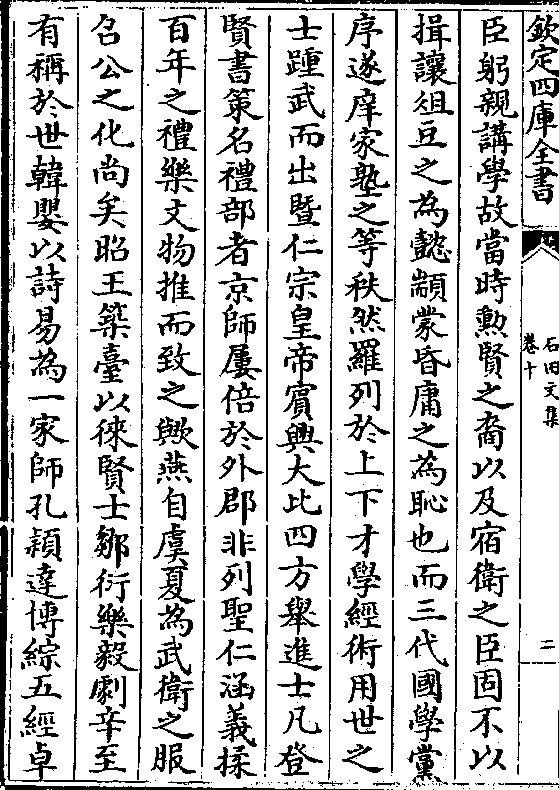 欽定四庫全書
石田文集
卷十
二
臣躬親講學故當時勲賢之裔以及宿衛之臣固不以
揖讓俎豆之為懿顓蒙昏庸之為恥也而三代國學黨
序遂庠家塾之等秩然羅列於上下才學經術用世之
士踵武而出暨仁宗皇帝賓興大比四方舉進士凡登
賢書策名禮部者京師屢倍於外郡非列聖仁涵義揉
百年之禮樂文物推而致之歟燕自虞夏為武衛之服
召公之化尚矣昭王築臺以徠賢士鄒衍樂毅劇辛至
有稱於世韓嬰以詩易為一家師孔穎達博綜五經卓